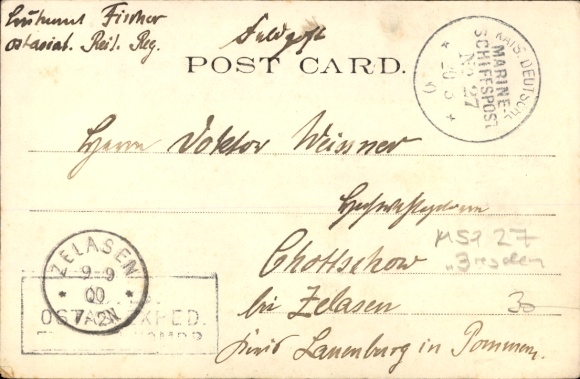 Leutnant Fischer
Ostasiat. Reit. Reg.
Feldpost
POST CARD.
KAIS. DEUTSCHE
MARINE-
SCHIFFSPOST
No 27
* 26 *
Herrn Doktor Weissner
Chottschow
bei Zelasen
Kreis Lauenburg in Pommern.
MSP 27
"Dresden
30
ZELASEN
9-9
00
7-8N
OSTAS. EXPED.